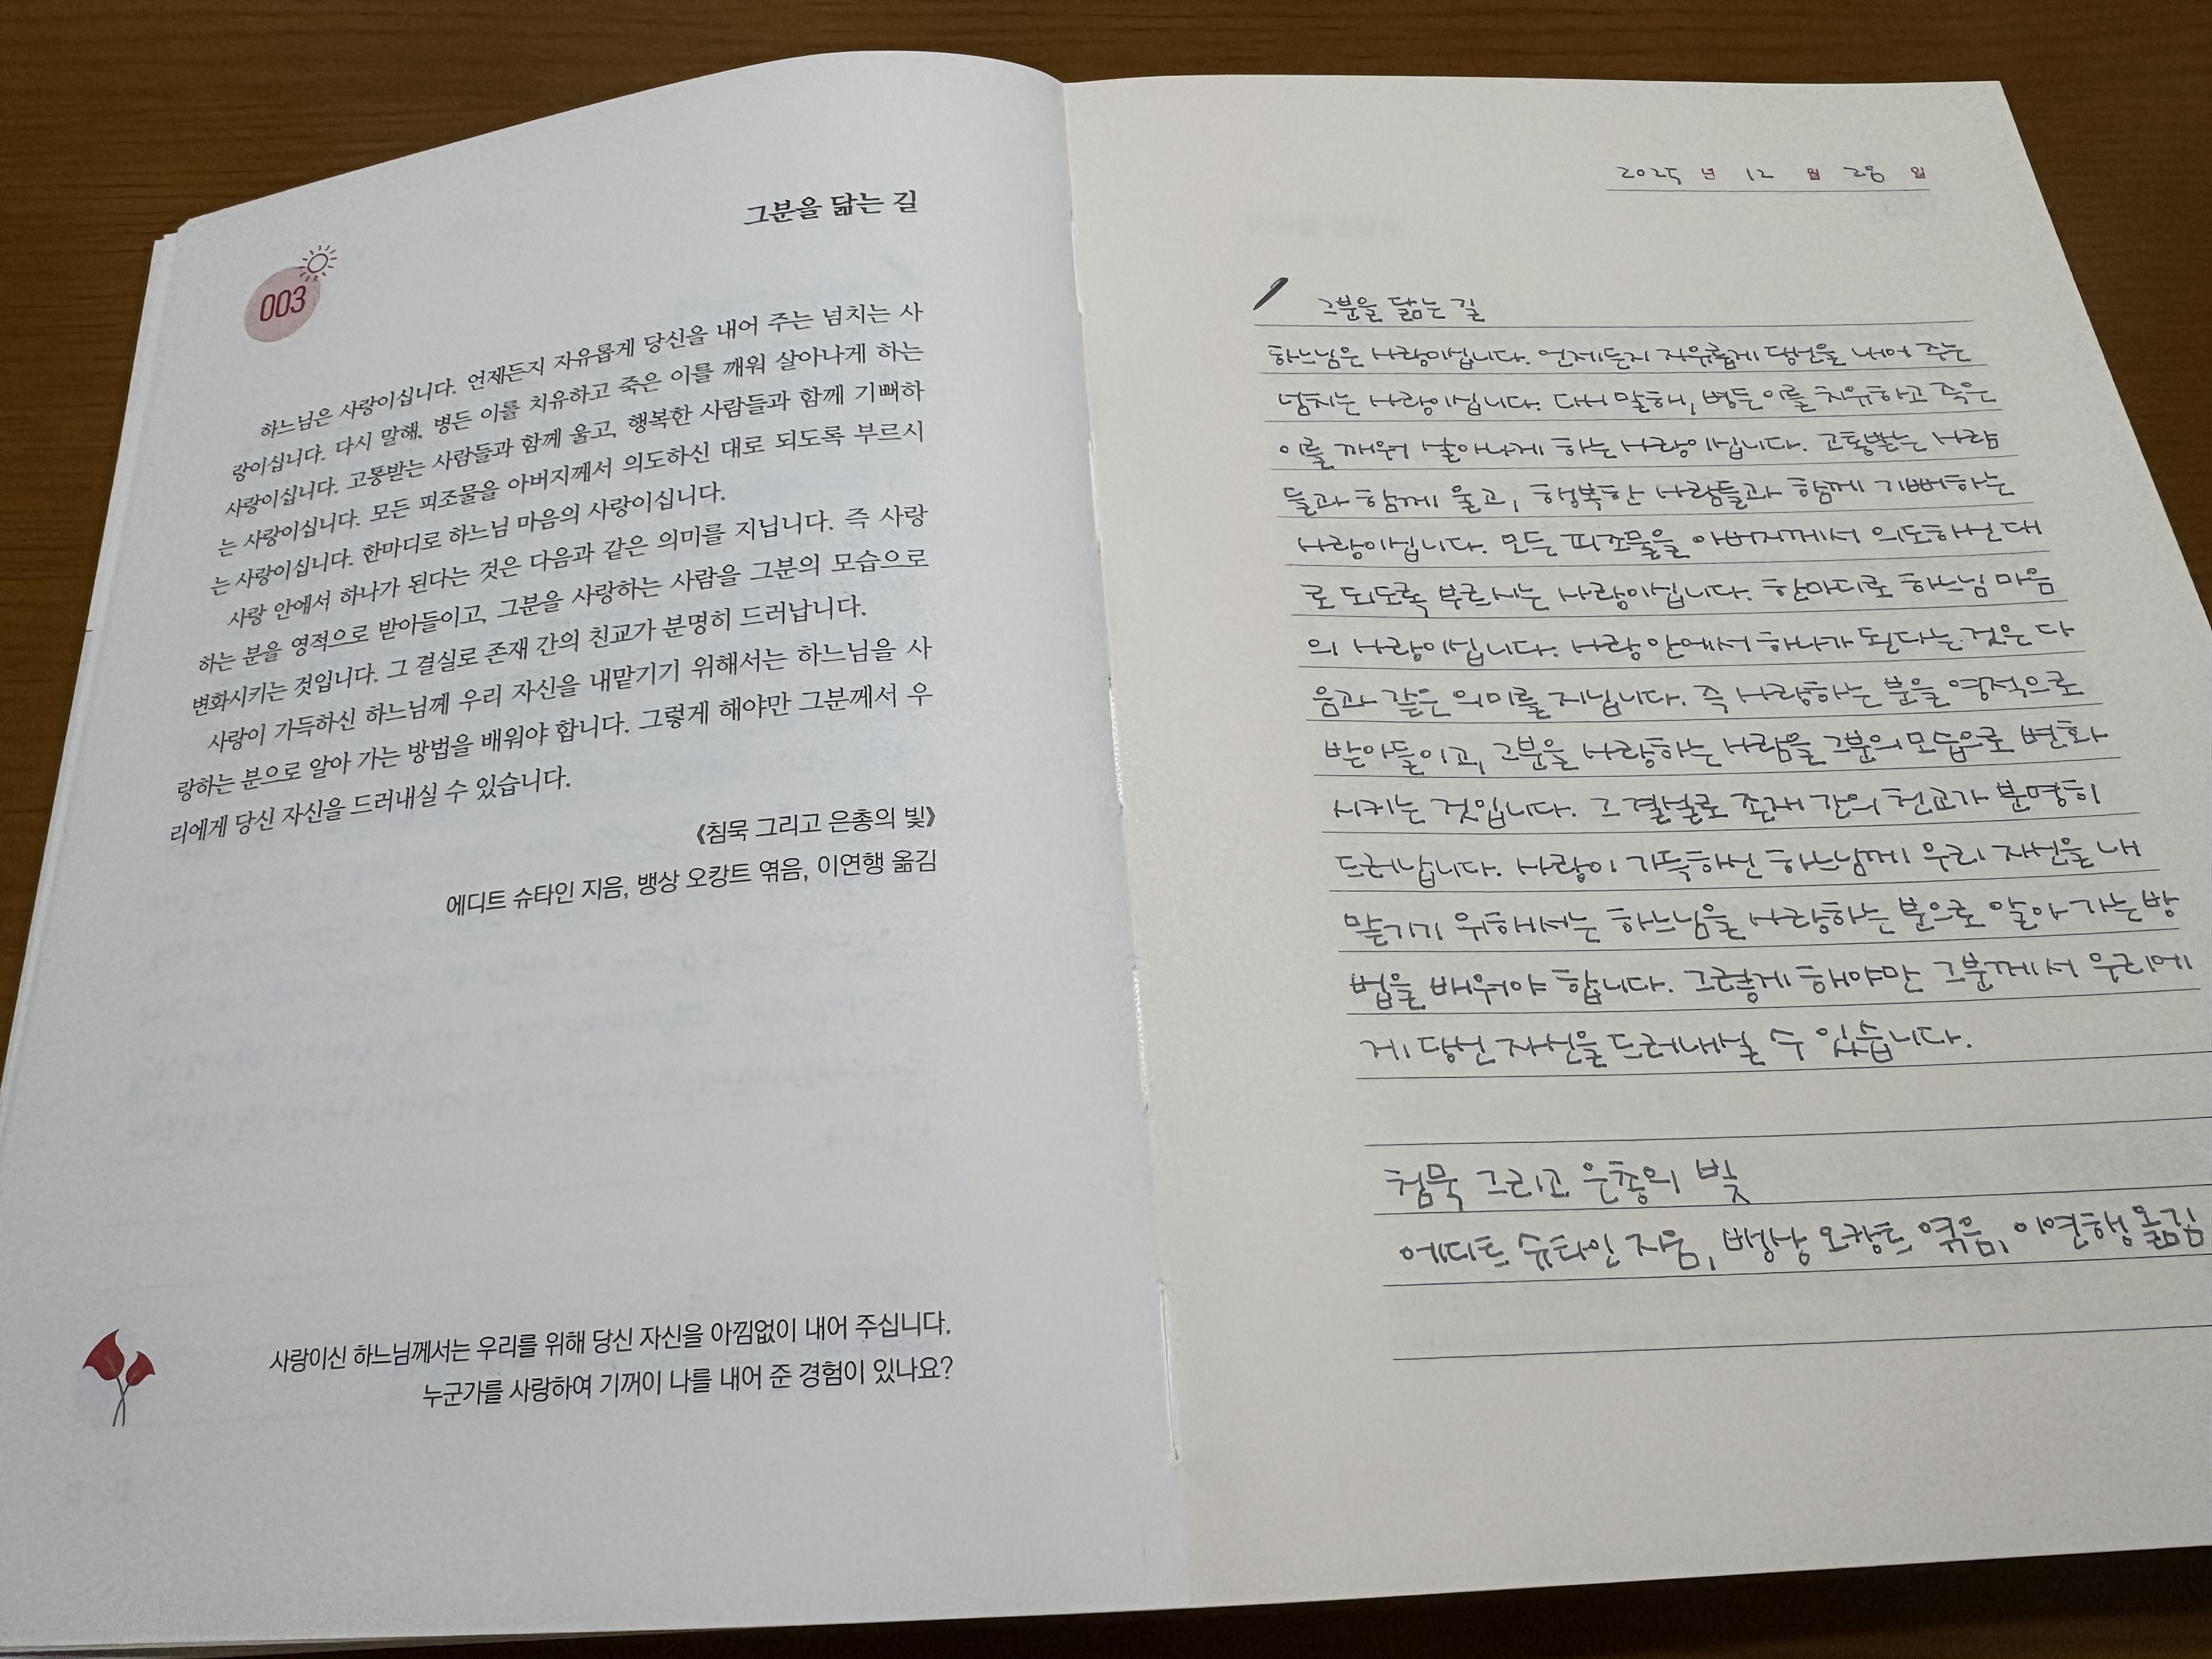 그분을 닮는 길
003
하느님은 사랑이십니다. 언제든지 자유롭게 당신을 내어 주는 넘치는 사
랑이십니다. 다시 말해, 병든 이를 치유하고 죽은 이를 깨워 살아나게 하는
사랑이십니다. 고통받는 사람들과 함께 울고, 행복한 사람들과 함께 기뻐하
는 사랑이십니다. 모든 피조물을 아버지께서 의도하신 대로 되도록 부르시
는 사랑이십니다. 한마디로 하느님 마음의 사랑이십니다.
사랑 안에서 하나가 된다는 것은 다음과 같은 의미를 지닙니다. 즉 사랑
하는 분을 영적으로 받아들이고, 그분을 사랑하는 사람을 그분의 모습으로
변화시키는 것입니다. 그 결실로 존재 간의 친교가 분명히 드러납니다.
사랑이 가득하신 하느님께 우리 자신을 내맡기기 위해서는 하느님을 사
랑하는 분으로 알아 가는 방법을 배워야 합니다. 그렇게 해야만 그분께서 우
리에게 당신 자신을 드러내실 수 있습니다.
《침묵 그리고 은총의 빛》
에디트 슈타인 지음, 뱅상 오캉트 엮음, 이연행 옮김
사랑이신 하느님께서는 우리를 위해 당신 자신을 아낌없이 내어 주십니다.
누군가를 사랑하여 기꺼이 나를 내어 준 경험이 있나요?
2025 년 12 월 28 일
그분을 닮는 길
하느님은 사랑이십니다. 언제든지 자유롭게 당신을 내어 주는
넘치는 사랑이십니다. 다시 말해, 병든 이를 치유하고 죽은
이를 깨워 살아나게 하는 사랑이십니다. 고통받는 사람
들과 함께 울고, 행복한 사람들과 함께 기뻐하는
사랑이십니다. 모든 피조물을 아버지께서 의도하신 대
로 되도록 부르시는 사랑이십니다. 한마디로 하느님 마음
의 사랑이십니다. 사랑 안에서 하나가 된다는 것은 다
음과 같은 의미를 지닙니다. 즉 사랑하는 분을 영적으로
받아들이고, 그분을 사랑하는 사람을 그분의 모습으로 변화
시키는 것입니다. 그 결실로 존재 간의 친교가 분명히
드러납니다. 사랑이 가득하신 하느님께 우리 자신을 내
맡기기 위해서는 하느님을 사랑하는 분으로 알아 가는 방
법을 배워야 합니다. 그렇게 해야만 그분께서 우리에
게 당신 자신을 드러내실 수 있습니다.
침묵 그리고 은총의 빛
에디트 슈타인 지음, 뱅상 오캉트 엮음, 이연행 옮김